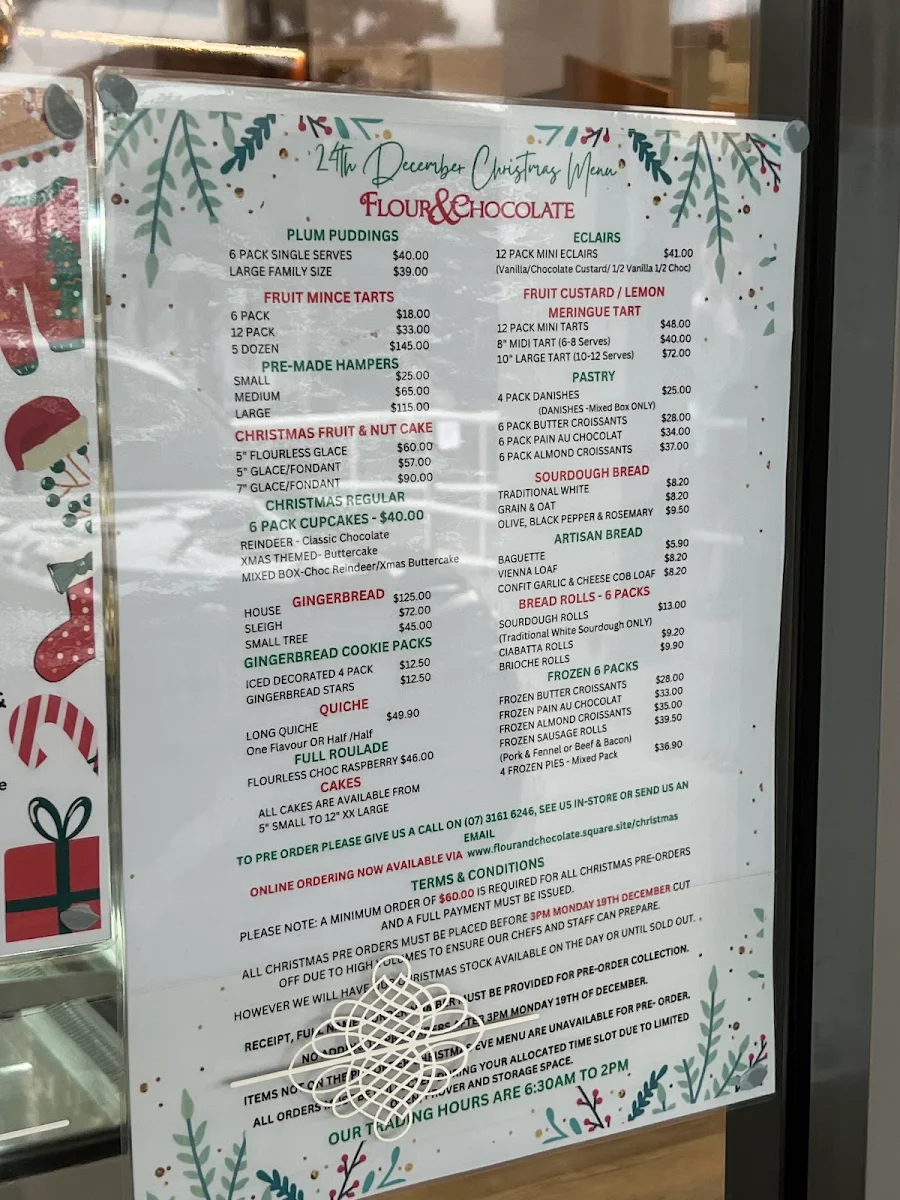 24th December Christmas Menu
FLOUR&CHOCOLATE
PLUM PUDDINGS
6 PACK SINGLE SERVES $40.00
LARGE FAMILY SIZE $39.00
FRUIT MINCE TARTS
6 PACK $18.00
12 PACK $33.00
5 DOZEN $145.00
PRE-MADE HAMPERS
SMALL $25.00
MEDIUM $65.00
LARGE $115.00
CHRISTMAS FRUIT & NUT CAKE
5" FLOURLESS GLACE $60.00
5" GLACE/FONDANT $57.00
7" GLACE/FONDANT $90.00
CHRISTMAS REGULAR
6 PACK CUPCAKES - $40.00
REINDEER - Classic Chocolate
XMAS THEMED- Buttercake
MIXED BOX-Choc Reindeer/Xmas Buttercake
GINGERBREAD
HOUSE $125.00
SLEIGH $72.00
SMALL TREE $45.00
GINGERBREAD COOKIE PACKS
ICED DECORATED 4 PACK $12.50
GINGERBREAD STARS $12.50
QUICHE
LONG QUICHE $49.90
One Flavour OR Half /Half
FULL ROULADE
FLOURLESS CHOC RASPBERRY $46.00
CAKES
ALL CAKES ARE AVAILABLE FROM
5" SMALL TO 12" XX LARGE
ECLAIRS
12 PACK MINI ECLAIRS $41.00
(Vanilla/Chocolate Custard/ 1/2 Vanilla 1/2 Choc)
FRUIT CUSTARD / LEMON
MERINGUE TART
12 PACK MINI TARTS $48.00
8" MIDI TART (6-8 Serves) $40.00
10" LARGE TART (10-12 Serves) $72.00
PASTRY
4 PACK DANISHES $25.00
(DANISHES -Mixed Box ONLY)
6 PACK BUTTER CROISSANTS $28.00
6 PACK PAIN AU CHOCOLAT $34.00
6 PACK ALMOND CROISSANTS $37.00
SOURDOUGH BREAD
TRADITIONAL WHITE $8.20
GRAIN & OAT $8.20
OLIVE, BLACK PEPPER & ROSEMARY $9.50
ARTISAN BREAD
BAGUETTE $5.90
VIENNA LOAF $8.20
CONFIT GARLIC & CHEESE COB LOAF $8.20
BREAD ROLLS - 6 PACKS
SOURDOUGH ROLLS $13.00
(Traditional White Sourdough ONLY)
CIABATTA ROLLS $9.20
BRIOCHE ROLLS $9.90
FROZEN 6 PACKS
FROZEN BUTTER CROISSANTS $28.00
FROZEN PAIN AU CHOCOLAT $33.00
FROZEN ALMOND CROISSANTS $35.00
FROZEN SAUSAGE ROLLS $39.50
(Pork & Fennel or Beef & Bacon)
4 FROZEN PIES - Mixed Pack $36.90
TO PRE ORDER PLEASE GIVE US A CALL ON (07) 3161 6246, SEE US IN-STORE OR SEND US AN
EMAIL
ONLINE ORDERING NOW AVAILABLE VIA www.flourandchocolate.square.site/christmas
TERMS & CONDITIONS
PLEASE NOTE: A MINIMUM ORDER OF $60.00 IS REQUIRED FOR ALL CHRISTMAS PRE-ORDERS
AND A FULL PAYMENT MUST BE ISSUED.
ALL CHRISTMAS PRE ORDERS MUST BE PLACED BEFORE 3PM MONDAY 19TH DECEMBER CUT
OFF DUE TO HIGH VOLUMES TO ENSURE OUR CHEFS AND STAFF CAN PREPARE.
HOWEVER WE WILL HAVE OUR CHRISTMAS STOCK AVAILABLE ON THE DAY OR UNTIL SOLD OUT.
RECEIPT, FULL NAME MUST BE PROVIDED FOR PRE-ORDER COLLECTION.
NO AFTER 3PM MONDAY 19TH OF DECEMBER.
ITEMS NOT ON THE CHRISTMAS EVE MENU ARE UNAVAILABLE FOR PRE- ORDER.
ALL ORDERS DURING YOUR ALLOCATED TIME SLOT DUE TO LIMITED
AND STORAGE SPACE.
OUR TRADING HOURS ARE 6:30AM TO 2PM
&
e